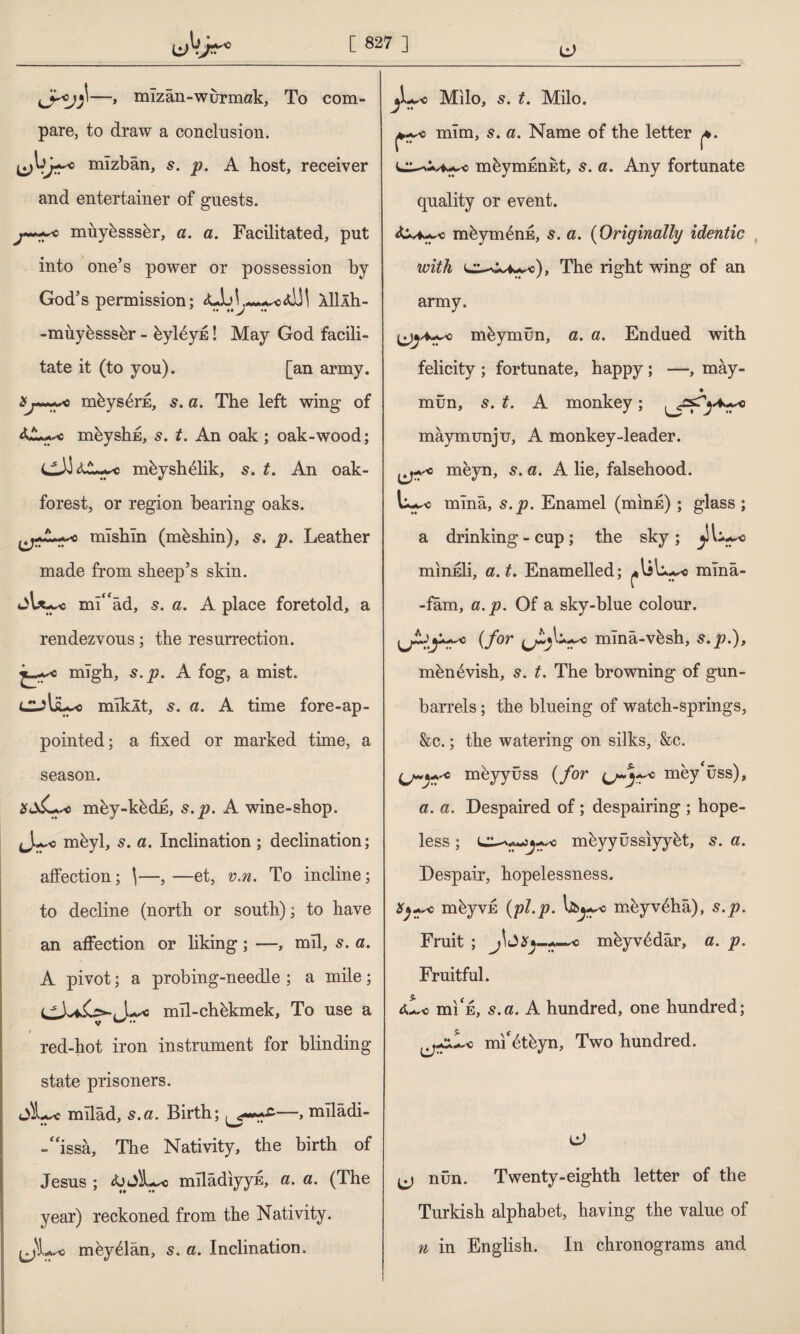 میزبان [ 827 ] ن
اورمق—, mīzān-wūrmak, To com-
pare, to draw a conclusion.
میزبان mīzbān, s. p. A host, receiver
and entertainer of guests.
میسر müyèsssèr, a. a. Facilitated, put
into one's power or possession by
God's permission; الله میسر ایلیه Àllāh-
-müyèsssèr - èyléyÉ! May God facili-
tate it (to you). [an army.
میسره mèysérÉ, s. a. The left wing of
میشه mèyshÉ, s. t. An oak; oak-wood;
میشه لك mèyshélik, s. t. An oak-
forest, or region bearing oaks.
میشین mīshīn (mèshin), s. p. Leather
made from sheep's skin.
میعاد mī“ād, s. a. A place foretold, a
rendezvous; the resurrection.
میغ mīgh, s. p. A fog, a mist.
میقات mīkāt, s. a. A time fore-ap-
pointed; a fixed or marked time, a
season.
میکده mèy-kèdÉ, s. p. A wine-shop.
میل mèyl, s. a. Inclination; declination;
affection; ا—, —et, v.n. To incline;
to decline (north or south); to have
an affection or liking; —, mīl, s. a.
A pivot; a probing-needle; a mile;
میل چکمك mīl-chèkmek, To use a
red-hot iron instrument for blinding
state prisoners.
میلاد mīlād, s. a. Birth; عیسی—, mīlādi-
-“issà, The Nativity, the birth of
Jesus; میلادیه mīlādìyyÉ, a. a. (The
year) reckoned from the Nativity.
میلان mèyélān, s. a. Inclination.
میلو Mìlo, s. t. Milo.
میم mīm, s. a. Name of the letter م.
میمنت mèymÉnÈt, s. a. Any fortunate
quality or event.
میمنه mèyménÉ, s. a. (Originally identic
with میمنت), The right wing of an
army.
میمون mèymūn, a. a. Endued with
felicity; fortunate, happy; —, mày-
mūn, s. t. A monkey; میمونجی
màymunjU, A monkey-leader.
مین mèyn, s. a. A lie, falsehood.
مینا mīnā, s. p. Enamel (mìnÉ); glass;
a drinking-cup; the sky; مینالو
mìnÉli, a. t. Enamelled; مینافام mīnā-
-fām, a. p. Of a sky-blue colour.
مینویش (for میناوش mīnā-vèsh, s. p.),
mènévish, s. t. The browning of gun-
barrels; the blueing of watch-springs,
&c.; the watering on silks, &c.
میوس (for میؤس mèyyūss mey‘ūss),
a. a. Despaired of; despairing; hope-
less; میوسیت mèyyūssìyyèt, s. a.
Despair, hopelessness.
میوه mèyvÉ (pl. p. میوها mèyvéhā), s. p.
Fruit; میوه دار mèyvédār, a. p.
Fruitful.
میئه mi‘É, s. a. A hundred, one hundred;
میئتین mi‘étèyn, Two hundred.
ن
ن nūn. Twenty-eighth letter of the
Turkish alphabet, having the value of
n in English. In chronograms and